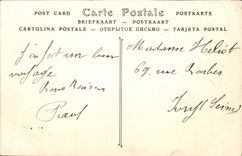 POST CARD Carte Postale POSTKARTE
BRIEFKAART — POSTKAART
CARTOLINA POSTALE — ОТКРЫТОЕ ПИСЬМО — TARJETA POSTAL
J'ai fait un bon
voyage
Bons Baisers
Paul
Madame
69 rue Barbès
Ivry s/ Seine